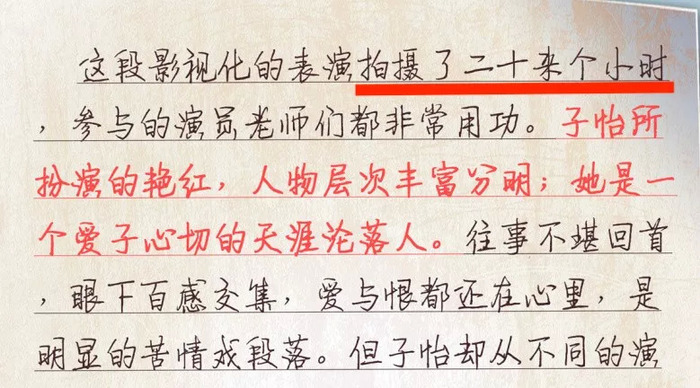 这段影视化的表演拍摄了二十来个小时
，参与的演员老师们都非常用功。子怡所
扮演的艳红，人物层次丰富分明；她是一
个爱子心切的天涯沦落人。往事不堪回首
，眼下百感交集，爱与恨都还在心里，是
明显的苦情戏段落。但子怡却从不同的演